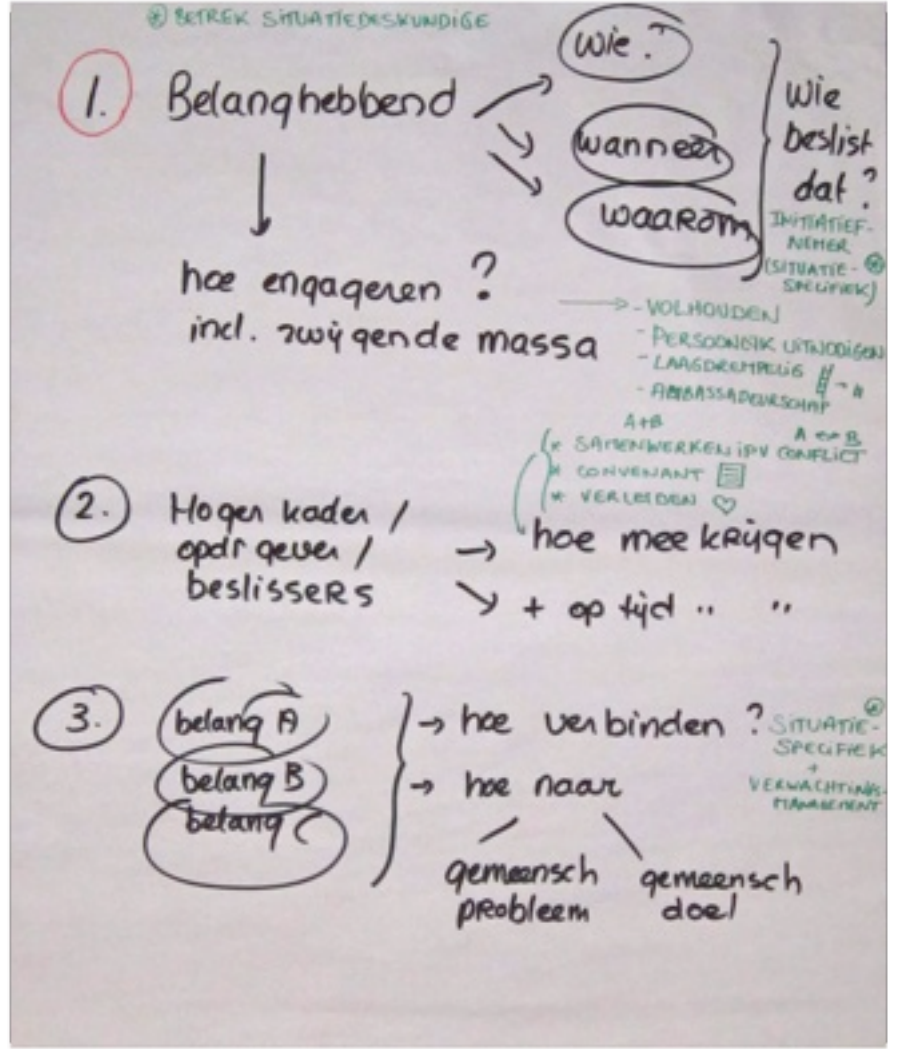 ⊛ BETREK SITUATIEDESKUNDIGE
1. Belanghebbend
wie?
wanneer
waarom
wie
beslist
dat?
INITIATIEF-
NEMER
(SITUATIE- ⊛
SPECIFIEK)
hoe engageren?
incl. zwijgende massa
→ - VOLHOUDEN
- PERSOONLIJK UITNODIGEN
- LAAGDREMPELIG
- AMBASSADEURSCHAP
A+B
A ↔ B
* SAMENWERKEN iPV CONFLICT
* CONVENANT
* VERLEIDEN ♡
2. Hoger kader /
opdr gever /
beslissers
→ hoe mee krijgen
↘ + op tijd " "
3. belang A
belang B
belang C
→ hoe verbinden?
→ hoe naar
gemeensch
probleem
gemeensch
doel
⊛
SITUATIE-
SPECIFIEK
+
VERWACHTINGS-
MANAGEMENT